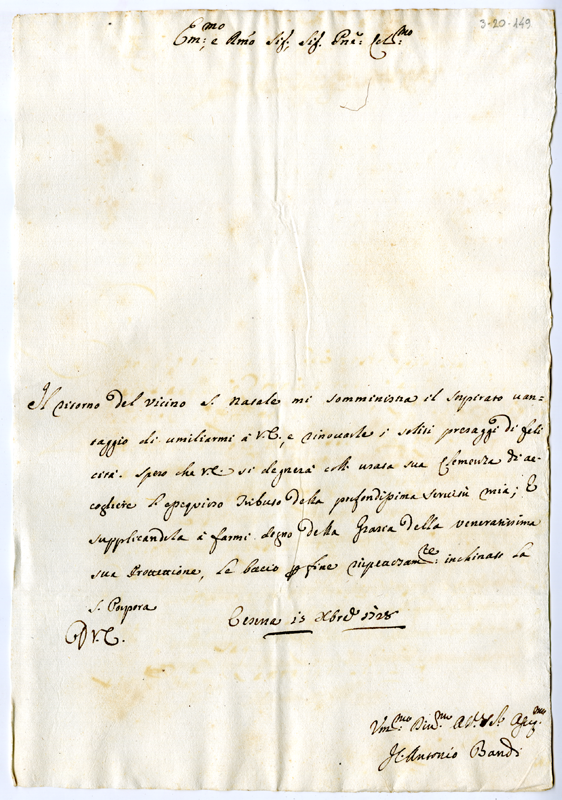 3-20-149
Em:mo e Rmo Sig: Sig. Pne: Col:mo
Il ritorno del vicino S. Natale mi somministra il sospirato van-
taggio di umiliarmi à V.E., e rinovarle i soliti presaggi di feli
cità. Spero che V.E. si degnerà coll usata sua Clemenza di ac-
cogliere l'ossequioso Tributo della profondissima servitù mia; E
supplicandola à farmi degno della Grazia della veneratissima
sua Protettione, le baccio per fine rispettosamte: inchinato la
S. Porpora
D V.E.
Cesena 15 Xbre 1728
Vm:mo Div:mo ed Oss:mo
Antonio Bandi